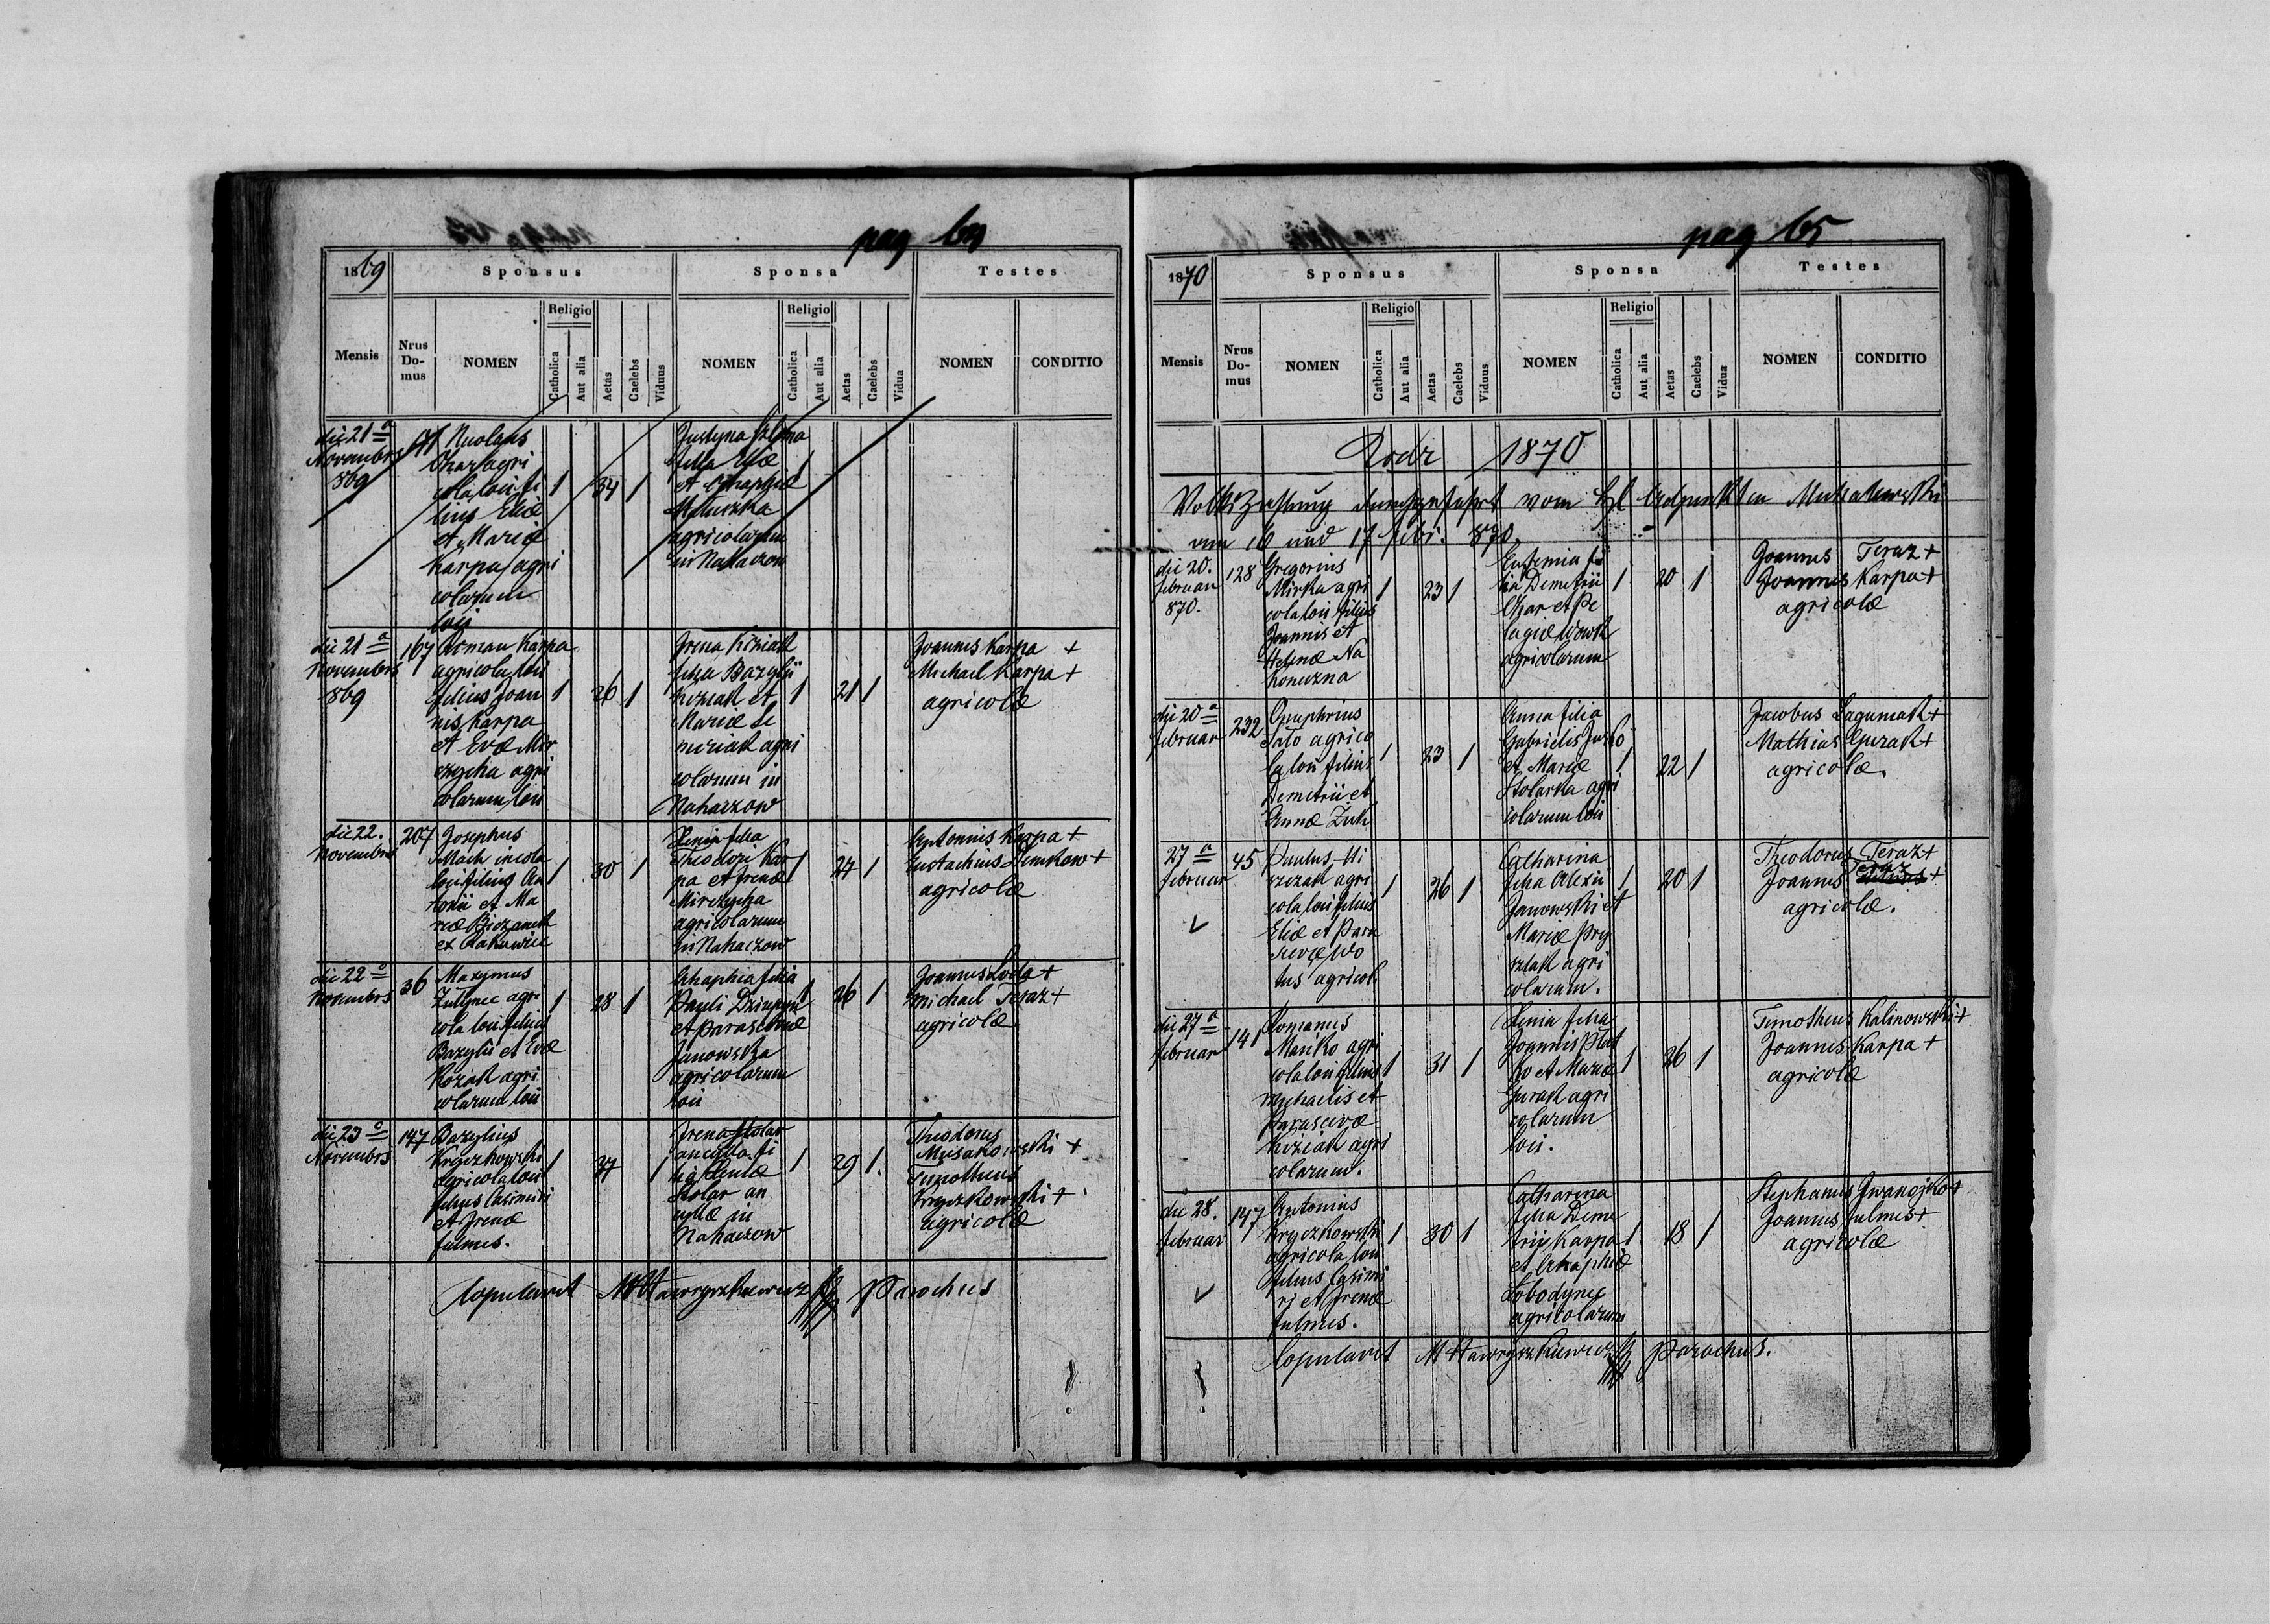 pag 64
1869
Sponsus
Sponsa
Testes
Mensis
Nrus
Do-
mus
NOMEN
Religio
Catholica
Aut alia
Aetas
Caelebs
Viduus
NOMEN
Religio
Catholica
Aut alia
Aetas
Caelebs
Vidua
NOMEN
CONDITIO
die 21a
Novembris
869
Nicolaus
Char agri
cola loci fi
lius Eliæ
et Mariæ
Karpa agri
colarum
loci
1
34
1
Justyna
filia Eliæ
et
agricolarum
in Nahaczow
1
die 21a
Novembris
869
167
Roman Karpa
agricola loci
filius Joan
nis Karpa
et Evæ Mir
czycha agri
colarum loci
1
26
1
Irena Koziak
filia Bazylii
Koziak et
Mariæ Se
meriak agri
colarum in
Nahaczow
1
21
1
Joannes Karpa +
Michael Karpa +
agricolæ
die 22.
Novembris
207
Josephus
Mach incola
loci filius An
tonii et Ma
riæ
ex
1
30
1
Xenia filia
Theodori Kar
pa et Irenæ
Mirczycha
agricolarum
in Nahaczow
1
27
1
Antonius Karpa +
Eustachius Demkow +
agricolæ
die 22a
Novembris
36
Maxymus
agri
cola loci filius
Bazylii et Evæ
Koziak agri
colarum loci
1
28
1
Ahaphia filia
Pauli
et Parascevæ
Janowska
agricolarum
loci
1
26
1
Joannes Loda +
Michael Teraz +
agricolæ
die 23a
Novembris
147
Bazylius
Kryczkowski
agricola loci
filius Casimiri
et Irenæ
fulmes.
1
37
1
Irena Stolar
ancylla fi
lia
Stolar an
cyllæ in
Nahaczow
1
29
1.
Theodorus
Musakowski +
Timotheus
Kryczkowski +
agricolæ
Copulavit M Hawryszkiewicz Parochus
pag 65
1870
Sponsus
Sponsa
Testes
Mensis
Nrus
Do-
mus
NOMEN
Religio
Catholica
Aut alia
Aetas
Caelebs
Viduus
NOMEN
Religio
Catholica
Aut alia
Aetas
Caelebs
Vidua
NOMEN
CONDITIO
1870
Volkszählung durchgeführt vom
am 16 und 17 870.
die 20.
februar
870.
128
Gregorius
Mirka agri
cola loci filius
Joannis et
Helenæ Na
koneczna
1
23
1
Eufemia fi
lia Demetrii
Char et Pe
lagiæ Wowk
agricolarum
1
20
1
Joannes Teraz +
Joannes Karpa +
agricolæ
die 20a
februar
232
Onuphrius
Sato agrico
la loci filius
Demetrii et
Annæ Zuk
1
23
1
Anna filia
Gabrielis
et Mariæ
Stolarka agri
colarum loci
1
22
1
Jacobus Lagumak +
Mathias Gurak +
agricolæ.
27a
februar
45
Paulus
agri
cola loci filius
Eliæ et Para
scevæ Wo
tus agricol.
1
26
1
Catharina
filia Alexii
Janowski et
Mariæ Pry
szlak agri
colarum.
1
20
1
Theodorus Teraz +
Joannes Teraz +
agricolæ.
die 27a
februar
141
Romanus
Mariko agri
cola loci filius
Michaelis et
Parascevæ
Koziak agri
colarum.
1
31
1
Xenia filia
Joannis
ko et Mariæ
Gurak agri
colarum
loci.
1
26
1
Timotheus Kalinowski +
Joannes Karpa +
agricolæ
die 28.
februar
147
Antonius
Kryczkowski
agricola loci
filius Casimi
ri et Irenæ
fulmes.
1
30
1
Catharina
filia Deme
trii Karpa
et Ahaphiæ
Lobodynec
agricolarum
1
18
1
Stephanus Iwanojko +
Joannes fulmes +
agricolæ
Copulavit M Hawryszkiewicz Parochus.